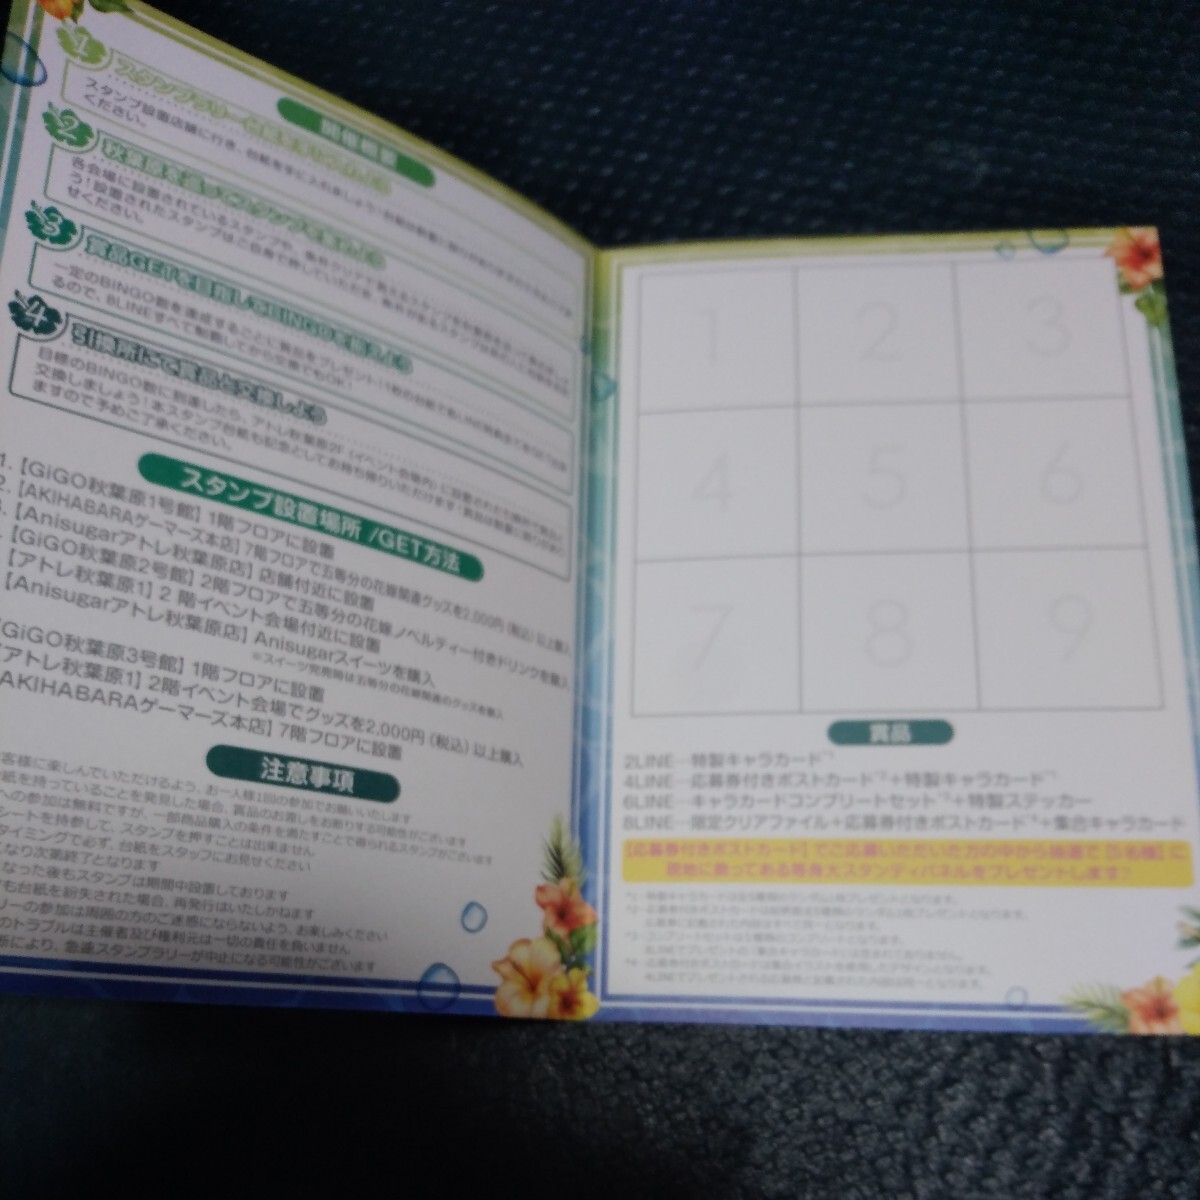 開催概要
1
スタンプラリー台紙を
スタンプ設置店舗に行き、台紙を手に入れましょう！台紙は数量に限りが
ください。
2
秋葉原を巡ってスタンプを集めよう
各会場に設置されているスタンプや、
う！設置されたスタンプはご自身で押していただき、
せください。
3
賞品GETを目指してBINGOを揃えよう
一定のBINGO数を達成するごとに賞品をプレゼント！
るので、8LINEすべて制覇してから交換でもOK！
4
引換所にて賞品と交換しよう
目標のBINGO数に到達したら、アトレ秋葉原2F（イベント会場内）に設置された引換所で賞品と
交換しましょう！本スタンプ台紙も記念としてお持ち帰りいただけます！賞品は数量に限りがあり
ますので予めご了承ください。
スタンプ設置場所 /GET方法
1.【GiGO秋葉原1号館】1階フロアに設置
2.【AKIHABARAゲーマーズ本店】7階フロアで五等分の花嫁関連グッズを2,000円（税込）以上購入
【Anisugarアトレ秋葉原店】店舗付近に設置
【GiGO秋葉原2号館】2階フロアで五等分の花嫁ノベルティー付きドリンクを購入
【アトレ秋葉原1】2階イベント会場付近に設置
【Anisugarアトレ秋葉原店】Anisugarスイーツを購入
※スイーツ完売時は五等分の花嫁関連のグッズを購入
GiGO秋葉原3号館】1階フロアに設置
アトレ秋葉原1】2階イベント会場でグッズを2,000円（税込）以上購入
AKIHABARAゲーマーズ本店】7階フロアに設置
注意事項
客様に楽しんでいただけるよう、お一人様1回の参加でお願いいたします
紙を持っていることを発見した場合、賞品のお渡しをお断りする可能性がございます
への参加は無料ですが、一部商品購入の条件を満たすことで得られるスタンプがございます
シートを持参して、スタンプを押すことは出来ません
タイミングで必ず、台紙をスタッフにお見せください
なり次第終了となります
なった後もスタンプは期間中設置しております
も台紙を紛失された場合、再発行はいたしかねます
リーの参加は周囲の方のご迷惑にならないよう、お楽しみください
のトラブルは主催者及び権利元は一切の責任を負いません
断により、急遽スタンプラリーが中止になる可能性がございます
1 2 3
4 5 6
7 8 9
賞品
2LINE…特製キャラカード*1
4LINE…応募券付きポストカード*2＋特製キャラカード*1
6LINE…キャラカードコンプリートセット*3＋特製ステッカー
8LINE…限定クリアファイル＋応募券付きポストカード*4＋集合キャラカード
【応募券付きポストカード】でご応募いただいた方の中から抽選で【5名様】に
現地に飾ってある等身大スタンディパネルをプレゼントします！